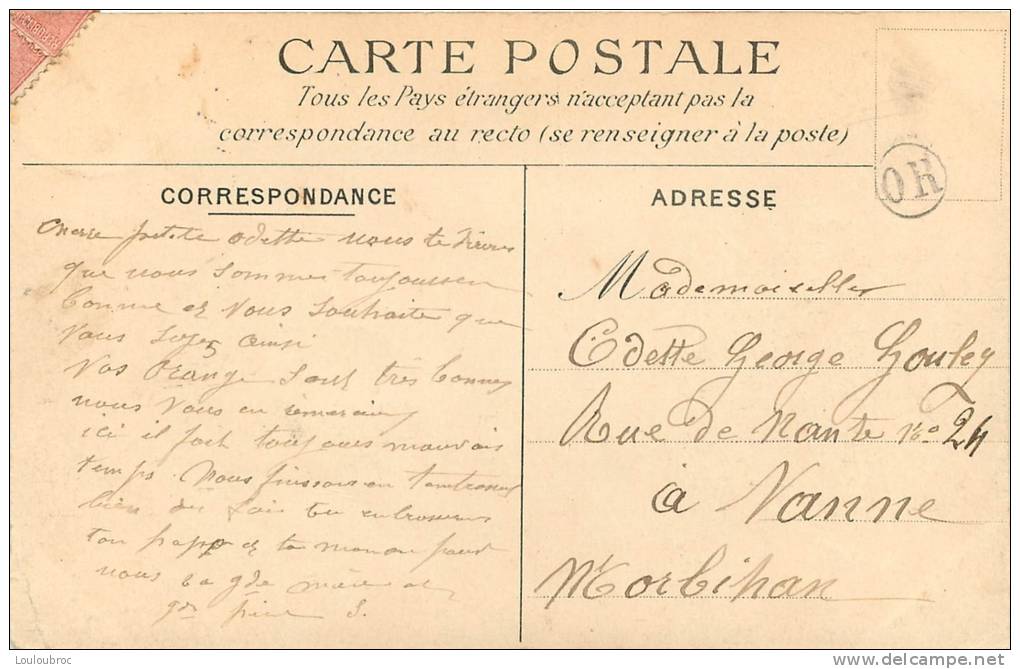 CARTE POSTALE
Tous les Pays étrangers n'acceptant pas la
correspondance au recto (se renseigner à la poste)
OR
CORRESPONDANCE
ADRESSE
petite odette nous te
que nous sommes
bonne et vous souhaite que
vous soyez ainsi
vos Orange sont très bonnes
nous vous en
ici il fait toujours mauvais
temps. Nous finissons en
bien des fois tu
ton papa et ta maman pour
nous ta gde mère et
gd père S.
Mademoiselle
Odette George Gouley
Rue de Nante No 24
à Vanne
Morbihan
Louloubroc
www.delcampe.net